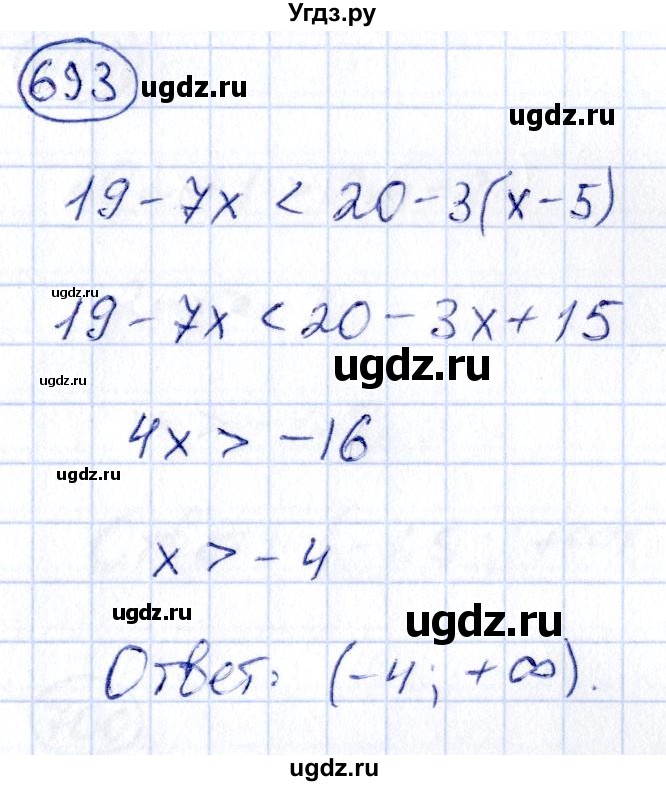 Угдз.ру
693 ugdz.ru
ugdz.ru
19 - 7x < 20 - 3(x - 5)
ugdz.ru
19 - 7x < 20 - 3x + 15
ugdz.ru
ugdz.ru
4x > -16
ugdz.ru
x > -4
ugdz.ru
ugdz.ru
Ответ: (-4; +∞).
ugdz.ru